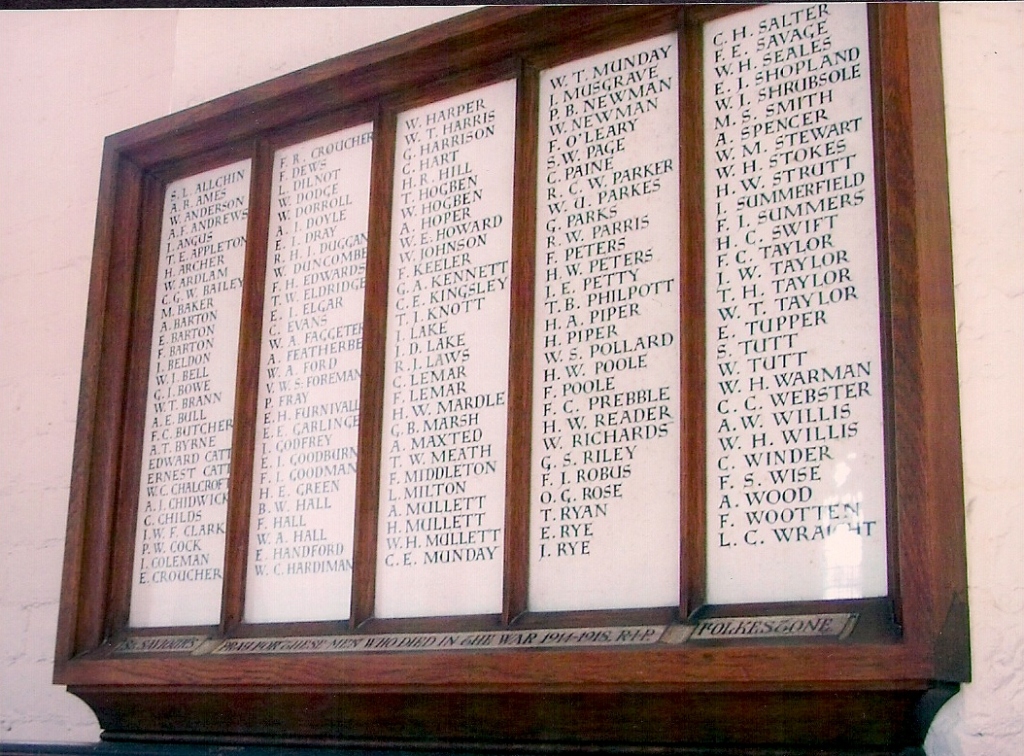 S. L. ALLCHIN
A. R. AMES
W. ANDERSON
A. F. ANDREWS
J. ANGUS
T. E. APPLETON
H. ARCHER
W. ARDLAM
C. G. W. BAILEY
M. BAKER
A. BARTON
E. BARTON
F. BARTON
J. BELDON
W. J. BELL
G. J. BOWE
W. T. BRANN
A. E. BULL
F. C. BUTCHER
A. T. BYRNE
EDWARD CATT
ERNEST CATT
W. C. CHALCROFT
A. J. CHIDWICK
C. CHILDS
J. W. F. CLARK
P. W. COCK
J. COLEMAN
E. CROUCHER
F. R. CROUCHER
F. DEWS
L. DILNOT
W. DODGE
W. DORROLL
A. J. DOYLE
E. J. DRAY
R. H. J. DUGGAN
W. DUNCOMBE
F. H. EDWARDS
T. W. ELDRIDGE
E. J. ELGAR
C. EVANS
W. A. FAGGETER
A. FEATHERBE
W. A. FORD
V. W. S. FOREMAN
P. FRAY
E. H. FURNIVALL
E. E. GARLINGE
J. GODFREY
E. J. GOODBURN
F. J. GOODMAN
H. E. GREEN
B. W. HALL
F. HALL
W. A. HALL
E. HANDFORD
W. C. HARDIMAN
W. HARPER
W. T. HARRIS
G. HARRISON
C. HART
H. R. HILL
T. HOGBEN
W. HOGBEN
A. HOPER
W. E. HOWARD
W. JOHNSON
F. KEELER
G. A. KENNETT
C. E. KINGSLEY
T. J. KNOTT
J. LAKE
J. D. LAKE
R. J. LAWS
C. LEMAR
F. LEMAR
H. W. MARDLE
G. B. MARSH
A. MAXTED
T. W. MEATH
F. MIDDLETON
L. MILTON
A. MULLETT
H. MULLETT
W. H. MULLETT
C. E. MUNDAY
W. T. MUNDAY
J. MUSGRAVE
P. B. NEWMAN
W. NEWMAN
F. O'LEARY
S. W. PAGE
C. PAINE
R. C. W. PARKER
W. U. PARKES
G. PARKS
R. W. PARRIS
F. PETERS
H. W. PETERS
J. E. PETTY
T. B. PHILPOTT
H. A. PIPER
H. PIPER
W. S. POLLARD
H. W. POOLE
F. POOLE
F. C. PREBBLE
H. W. READER
W. RICHARDS
G. S. RILEY
F. J. ROBUS
O. G. ROSE
T. RYAN
E. RYE
J. RYE
C. H. SALTER
F. E. SAVAGE
W. H. SEALES
E. J. SHOPLAND
W. J. SHRUBSOLE
M. S. SMITH
A. SPENCER
W. M. STEWART
W. H. STOKES
H. W. STRUTT
J. SUMMERFIELD
F. J. SUMMERS
H. C. SWIFT
F. C. TAYLOR
J. W. TAYLOR
T. H. TAYLOR
W. T. TAYLOR
E. TUPPER
S. TUTT
W. TUTT
W. H. WARMAN
C. C. WEBSTER
A. W. WILLIS
W. H. WILLIS
C. WINDER
F. S. WISE
A. WOOD
F. WOOTTEN
L. C. WRAIGHT
St SAVIOURS PRAY FOR THESE MEN WHO DIED IN THE WAR 1914-1918. R.I.P. FOLKESTONE